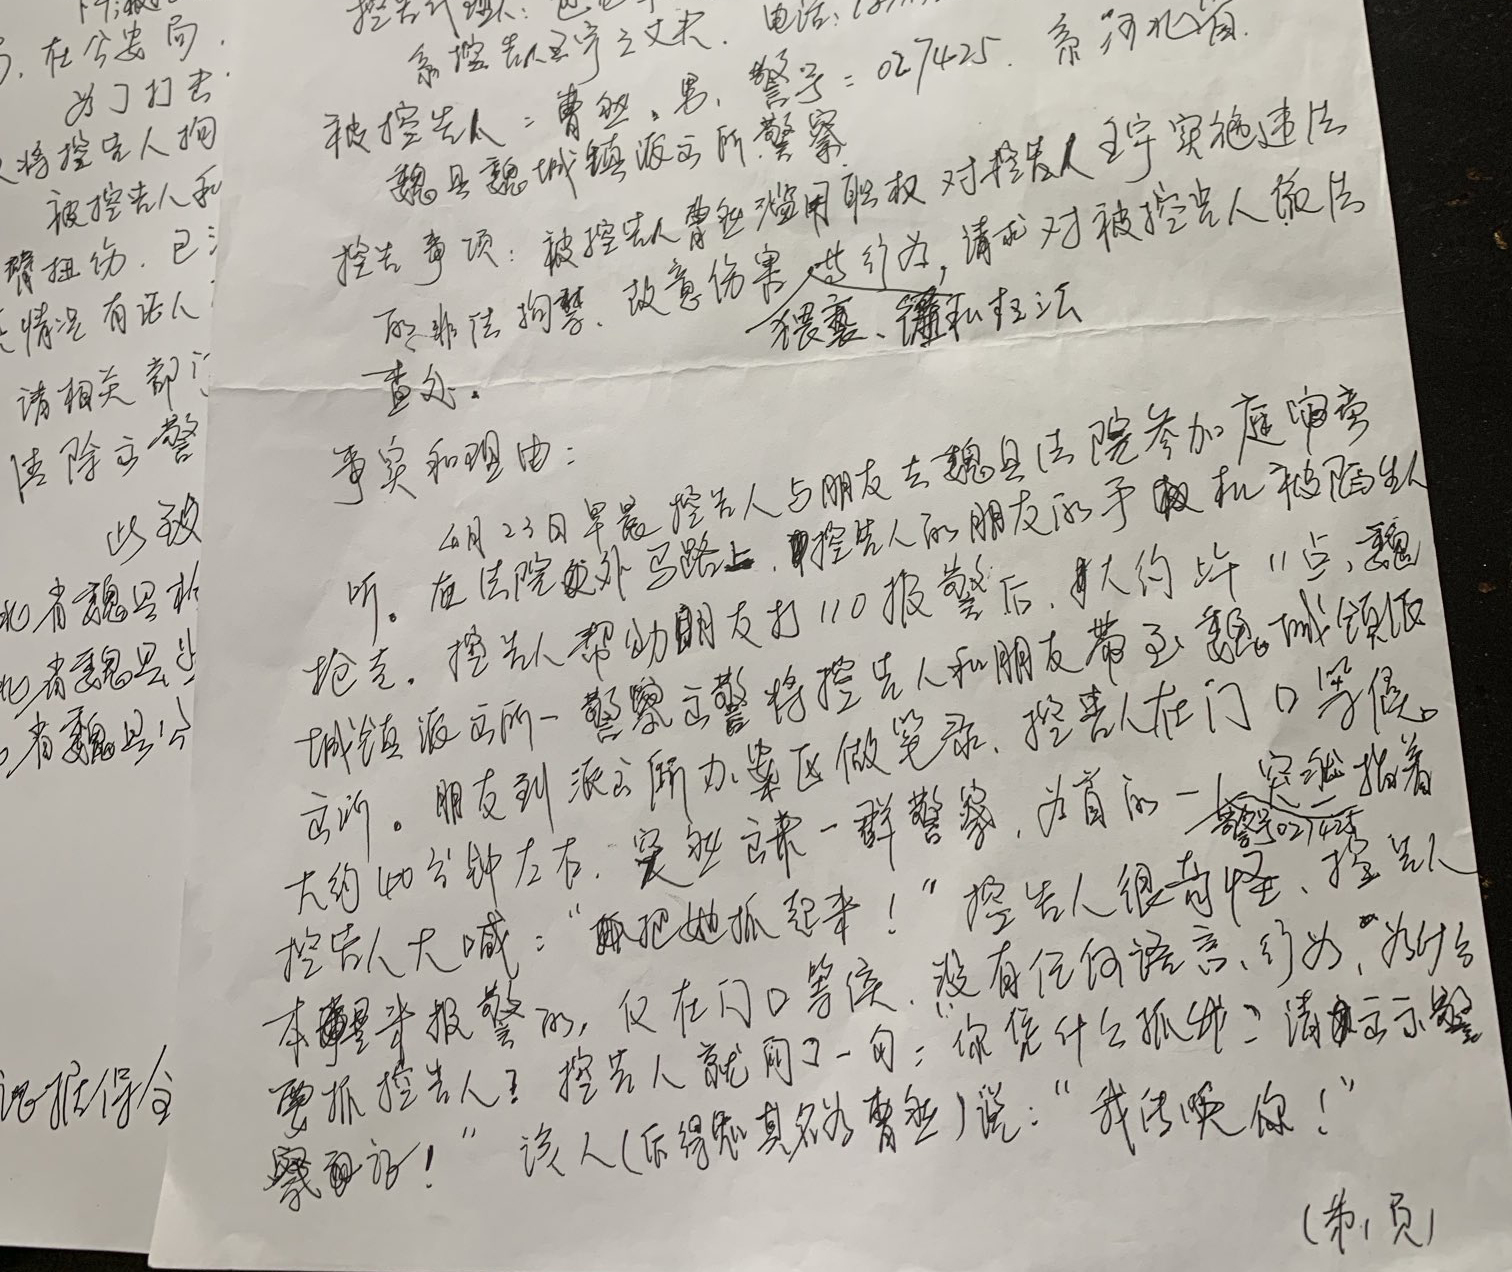 在公安局
为了打击
将控告人拘
被控告人和
臂扭伤.已
情况有证人
请相关部门
法除出警
此致
北省魏县
北省魏县
省魏县公
证据保全
控告代理人:
系控告人王宇之丈夫. 电话:
被控告人:曹然、男、警号:027425. 系河北省
魏县魏城镇派出所警察
控告事项:被控告人曹然滥用职权对控告人王宇实施违法
的非法拘禁、故意伤害等行为,请求对被控告人依法
猥亵、徇私枉法
查处.
事实和理由:
4月23日早晨控告人与朋友去魏县法院参加庭审旁
听。在法院外马路上,控告人的朋友的手机被陌生人
抢走.控告人帮助朋友打110报警后,大约上午11点,魏
城镇派出所一警察出警将控告人和朋友带至魏城镇派
出所。朋友到派出所办案区做笔录,控告人在门口等候。
大约40分钟左右.突然出来一群警察,为首的一个突然指着
警号027425
控告人大喊:“把她抓起来!”控告人很奇怪、控告人
本是来报警的,仅在门口等候,没有任何语言、行为,为什么
要抓控告人?控告人就问了一句:“你凭什么抓我?请出示警
察证!”该人(后得知其名为曹然)说:“我传唤你!”
(第1页)